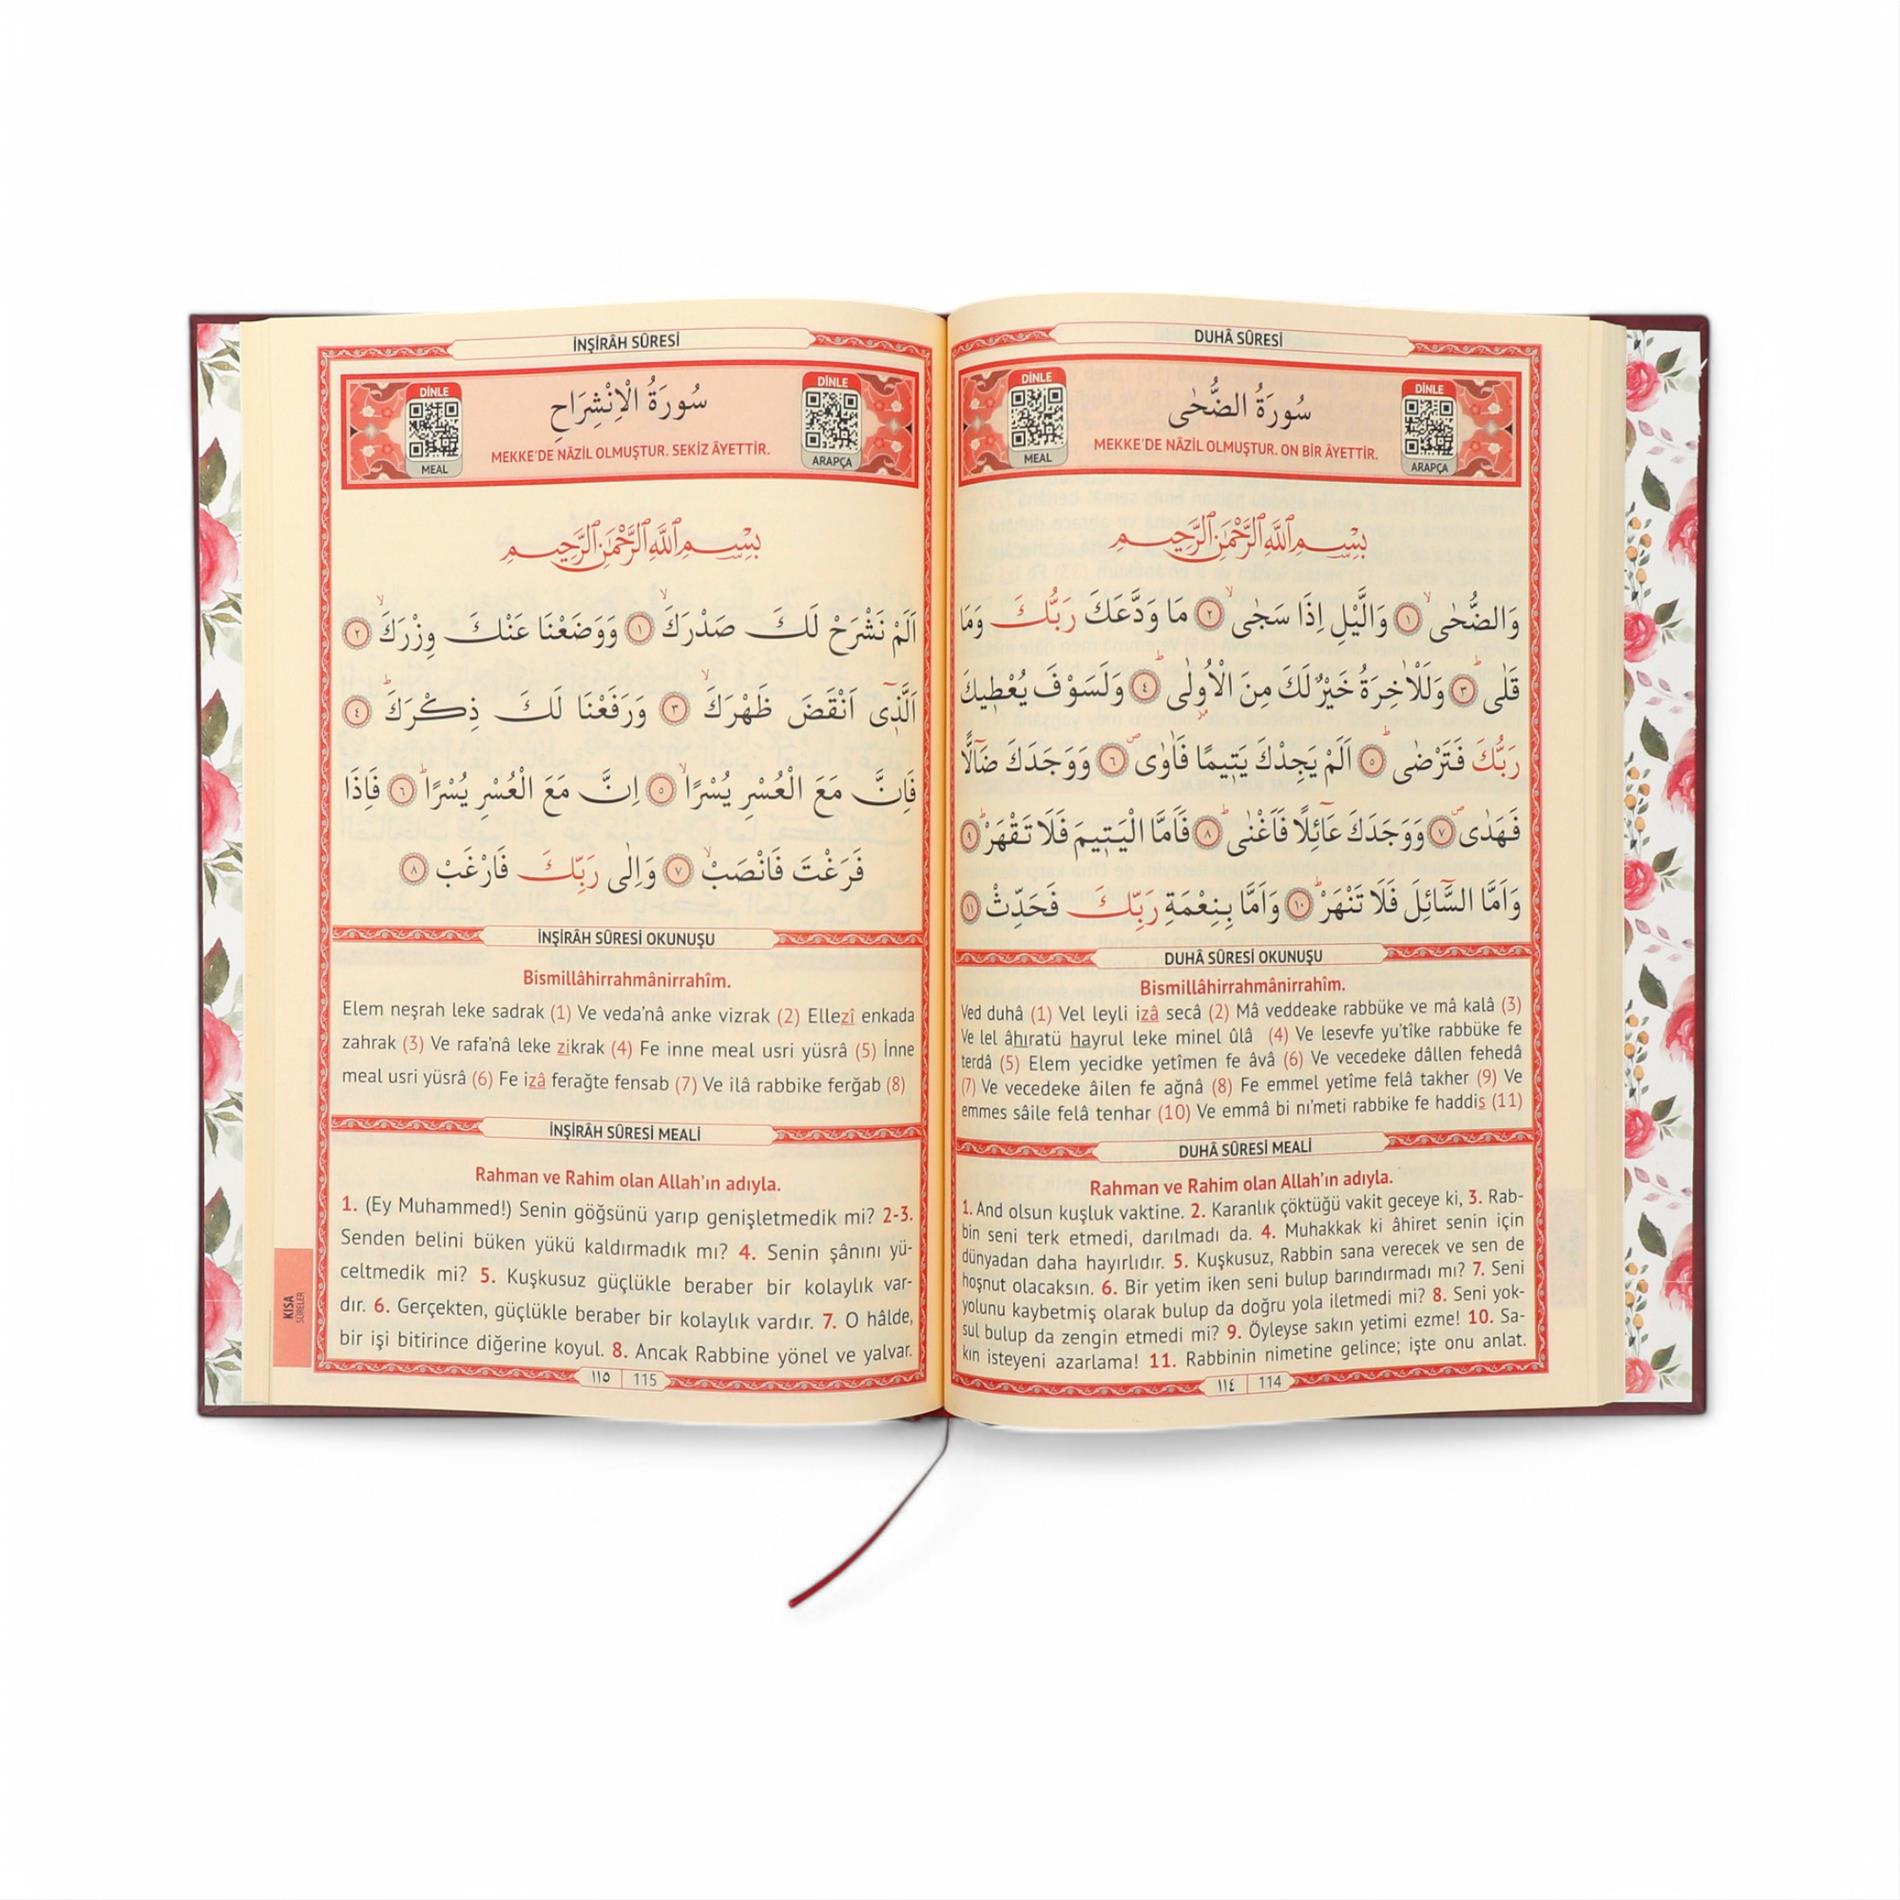 DUHÂ SÛRESİ
DİNLE
MEAL
سُورَةُ الضُّحٰى
MEKKE'DE NÂZİL OLMUŞTUR. ON BİR ÂYETTİR.
DİNLE
ARAPÇA
بِسْمِ اللّٰهِ الرَّحْمٰنِ الرَّحِيمِ
وَالضُّحٰىۙ ﴿١﴾ وَالَّيْلِ اِذَا سَجٰىۙ ﴿٢﴾ مَا وَدَّعَكَ رَبُّكَ وَمَا
قَلٰىۜ ﴿٣﴾ وَلَلْاٰخِرَةُ خَيْرٌ لَكَ مِنَ الْاُولٰىۜ ﴿٤﴾ وَلَسَوْفَ يُعْطِيكَ
رَبُّكَ فَتَرْضٰىۜ ﴿٥﴾ اَلَمْ يَجِدْكَ يَتِيمًا فَاٰوٰىۖ ﴿٦﴾ وَوَجَدَكَ ضَٓالًّا
فَهَدٰىۖ ﴿٧﴾ وَوَجَدَكَ عَٓائِلًا فَاَغْنٰىۜ ﴿٨﴾ فَاَمَّا الْيَتِيمَ فَلَا تَقْهَرْۜ ﴿٩﴾
وَاَمَّا السَّٓائِلَ فَلَا تَنْهَرْۜ ﴿١٠﴾ وَاَمَّا بِنِعْمَةِ رَبِّكَ فَحَدِّثْ ﴿١١﴾
DUHÂ SÛRESİ OKUNUŞU
Bismillâhirrahmânirrahîm.
Ved duhâ (1) Vel leyli izâ secâ (2) Mâ veddeake rabbüke ve mâ kalâ (3)
Ve lel âhıratü hayrul leke minel ûlâ (4) Ve lesevfe yu'tîke rabbüke fe
terdâ (5) Elem yecidke yetîmen fe âvâ (6) Ve vecedeke dâllen fehedâ
(7) Ve vecedeke âilen fe ağnâ (8) Fe emmel yetîme felâ takher (9) Ve
emmes sâile felâ tenhar (10) Ve emmâ bi nı'meti rabbike fe haddis (11)
DUHÂ SÛRESİ MEALİ
Rahman ve Rahim olan Allah'ın adıyla.
1. And olsun kuşluk vaktine. 2. Karanlık çöktüğü vakit geceye ki, 3. Rab-
bin seni terk etmedi, darılmadı da. 4. Muhakkak ki âhiret senin için
dünyadan daha hayırlıdır. 5. Kuşkusuz, Rabbin sana verecek ve sen de
hoşnut olacaksın. 6. Bir yetim iken seni bulup barındırmadı mı? 7. Seni
yolunu kaybetmiş olarak bulup da doğru yola iletmedi mi? 8. Seni yok-
sul bulup da zengin etmedi mi? 9. Öyleyse sakın yetimi ezme! 10. Sa-
kın isteyeni azarlama! 11. Rabbinin nimetine gelince; işte onu anlat.
١١٤ 114
İNŞİRÂH SÛRESİ
DİNLE
MEAL
سُورَةُ الْاِنْشِرَاحِ
MEKKE'DE NÂZİL OLMUŞTUR. SEKİZ ÂYETTİR.
DİNLE
ARAPÇA
بِسْمِ اللّٰهِ الرَّحْمٰنِ الرَّحِيمِ
اَلَمْ نَشْرَحْ لَكَ صَدْرَكَۙ ﴿١﴾ وَوَضَعْنَا عَنْكَ وِزْرَكَۙ ﴿٢﴾
اَلَّذِٓي اَنْقَضَ ظَهْرَكَۙ ﴿٣﴾ وَرَفَعْنَا لَكَ ذِكْرَكَۜ ﴿٤﴾
فَاِنَّ مَعَ الْعُسْرِ يُسْرًاۙ ﴿٥﴾ اِنَّ مَعَ الْعُسْرِ يُسْرًاۜ ﴿٦﴾ فَاِذَا
فَرَغْتَ فَانْصَبْۙ ﴿٧﴾ وَاِلٰى رَبِّكَ فَارْغَبْ ﴿٨﴾
İNŞİRÂH SÛRESİ OKUNUŞU
Bismillâhirrahmânirrahîm.
Elem neşrah leke sadrak (1) Ve veda'nâ anke vizrak (2) Ellezî enkada
zahrak (3) Ve rafa'nâ leke zikrak (4) Fe inne meal usri yüsrâ (5) İnne
meal usri yüsrâ (6) Fe izâ ferağte fensab (7) Ve ilâ rabbike ferğab (8)
İNŞİRÂH SÛRESİ MEALİ
Rahman ve Rahim olan Allah'ın adıyla.
1. (Ey Muhammed!) Senin göğsünü yarıp genişletmedik mi? 2-3.
Senden belini büken yükü kaldırmadık mı? 4. Senin şânını yü-
celtmedik mi? 5. Kuşkusuz güçlükle beraber bir kolaylık var-
dır. 6. Gerçekten, güçlükle beraber bir kolaylık vardır. 7. O hâlde,
bir işi bitirince diğerine koyul. 8. Ancak Rabbine yönel ve yalvar.
KISA
SÛRELER
١١٥ 115